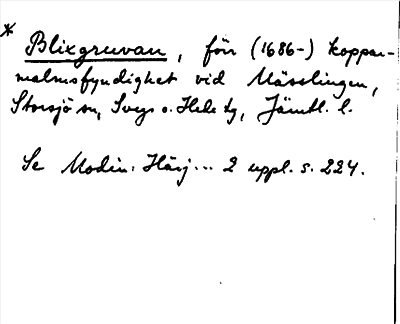 * Blixgruvan, förr (1686-) koppar-
malmsfyndighet vid Mässlingen,
Storsjö sn, Svegs o. Hede tg, Jämtl. l.
Se Modin: Härj... 2 uppl. s. 224.